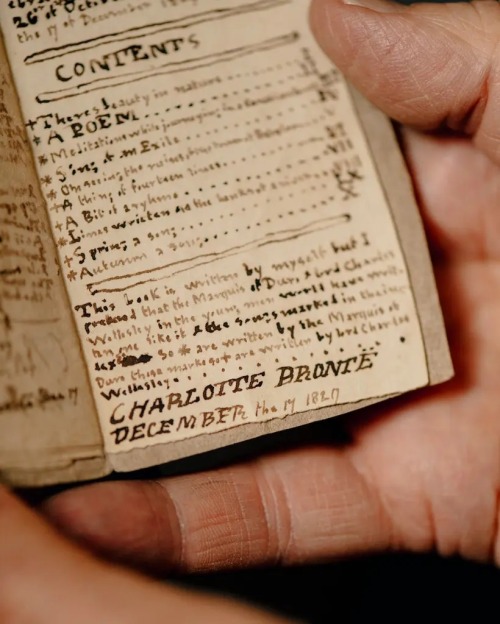 26 of Octob
the 17 of December
CONTENTS
+ There's beauty in nature
* A POEM
* Meditations while journeying in a
* Song of an Exile
* On seeing the ruins of the tower of Babylon
* A thing of fourteen lines
* A Bit of a rhyme
* Lines written on the bank of a
+ Spring a song
* Autumn a song
This book is written by myself but I
pretend that the Marquis of Duro, & lord Charles
Wellesley in the young men world have writ-
ten one like it & the songs marked in the in-
dex so * are written by the Marquis of
Duro those marked so + are written by lord Charles
Wellesley
CHARLOTTE BRONTË
DECEMBER the 17 182